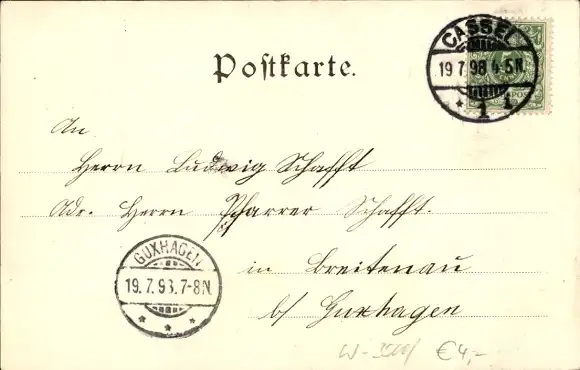 CASSEL
19 7.98 4-5N.
* 1 i
5
POST
Postkarte.
An
Herrn Ludwig Schafft
Adr. Herrn Pfarrer Schafft.
GUXHAGEN
19.7.98.7-8N.
* * *
in Breitenau
b/ Guxhagen
€4,-